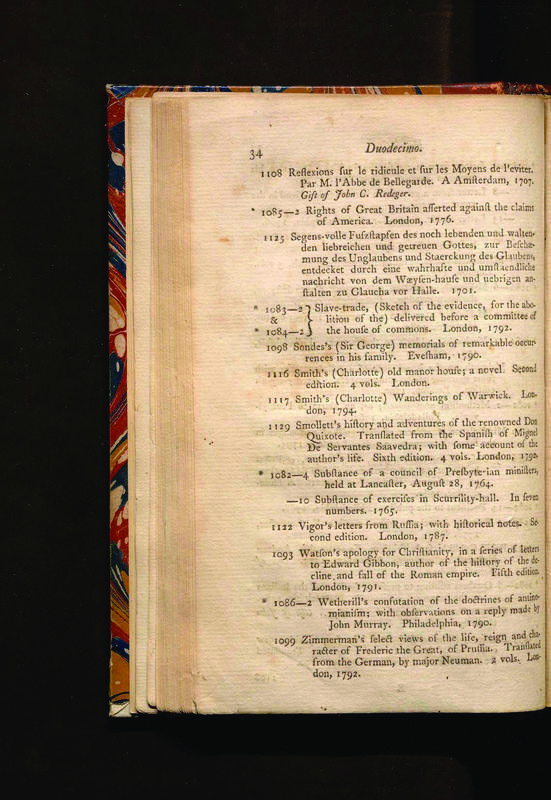 34
Duodecimo.
1108 Reflexions ſur le ridicule et ſur les Moyens de l'eviter.
Par M. l'Abbe de Bellegarde. A Amſterdam, 1707.
Gift of John C. Redeger.
* 1085—2 Rights of Great Britain aſſerted againſt the claims
of America. London, 1776.
1125 Segens-volle Fuſzſtapfen des noch lebenden und walten-
den liebreichen und getreuen Gottes, zur Beſchæ-
mung des Unglaubens und Staerckung des Glaubens,
entdecket durch eine wahrhafte und umſtaendliche
nachricht von dem Wæyſen-hauſe und uebrigen an-
ſtalten zu Glaucha vor Halle. 1701.
* 1083—2 } Slave-trade, (Sketch of the evidence, for the abo-
& lition of the) delivered before a committee of
* 1084—2 the houſe of commons. London, 1792.
1098 Sondes's (Sir George) memorials of remarkable occur-
rences in his family. Eveſham, 1790.
1116 Smith's (Charlotte) old manor houſe; a novel. Second
edition. 4 vols. London.
1117 Smith's (Charlotte) Wanderings of Warwick. Lon-
don, 1794.
1129 Smollett's hiſtory and adventures of the renowned Don
Quixote. Tranſlated from the Spaniſh of Miguel
De Servantes Saavedra; with ſome account of the
author's life. Sixth edition. 4 vols. London, 1792.
* 1082—4 Subſtance of a council of Preſbyterian miniſters,
held at Lancaſter, Auguſt 28, 1764.
—10 Subſtance of exerciſes in Scurrility-hall. In ſeven
numbers. 1765.
1122 Vigor's letters from Ruſſia; with hiſtorical notes. Se-
cond edition. London, 1787.
1093 Watſon's apology for Chriſtianity, in a ſeries of letters
to Edward Gibbon, author of the hiſtory of the de-
cline and fall of the Roman empire. Fifth edition.
London, 1791.
* 1086—2 Wetherill's confutation of the doctrines of antino-
mianiſm; with obſervations on a reply made by
John Murray. Philadelphia, 1790.
1099 Zimmerman's ſelect views of the life, reign and cha-
racter of Frederic the Great, of Pruſſia. Tranſlated
from the German, by major Neuman. 2 vols. Lon-
don, 1792.